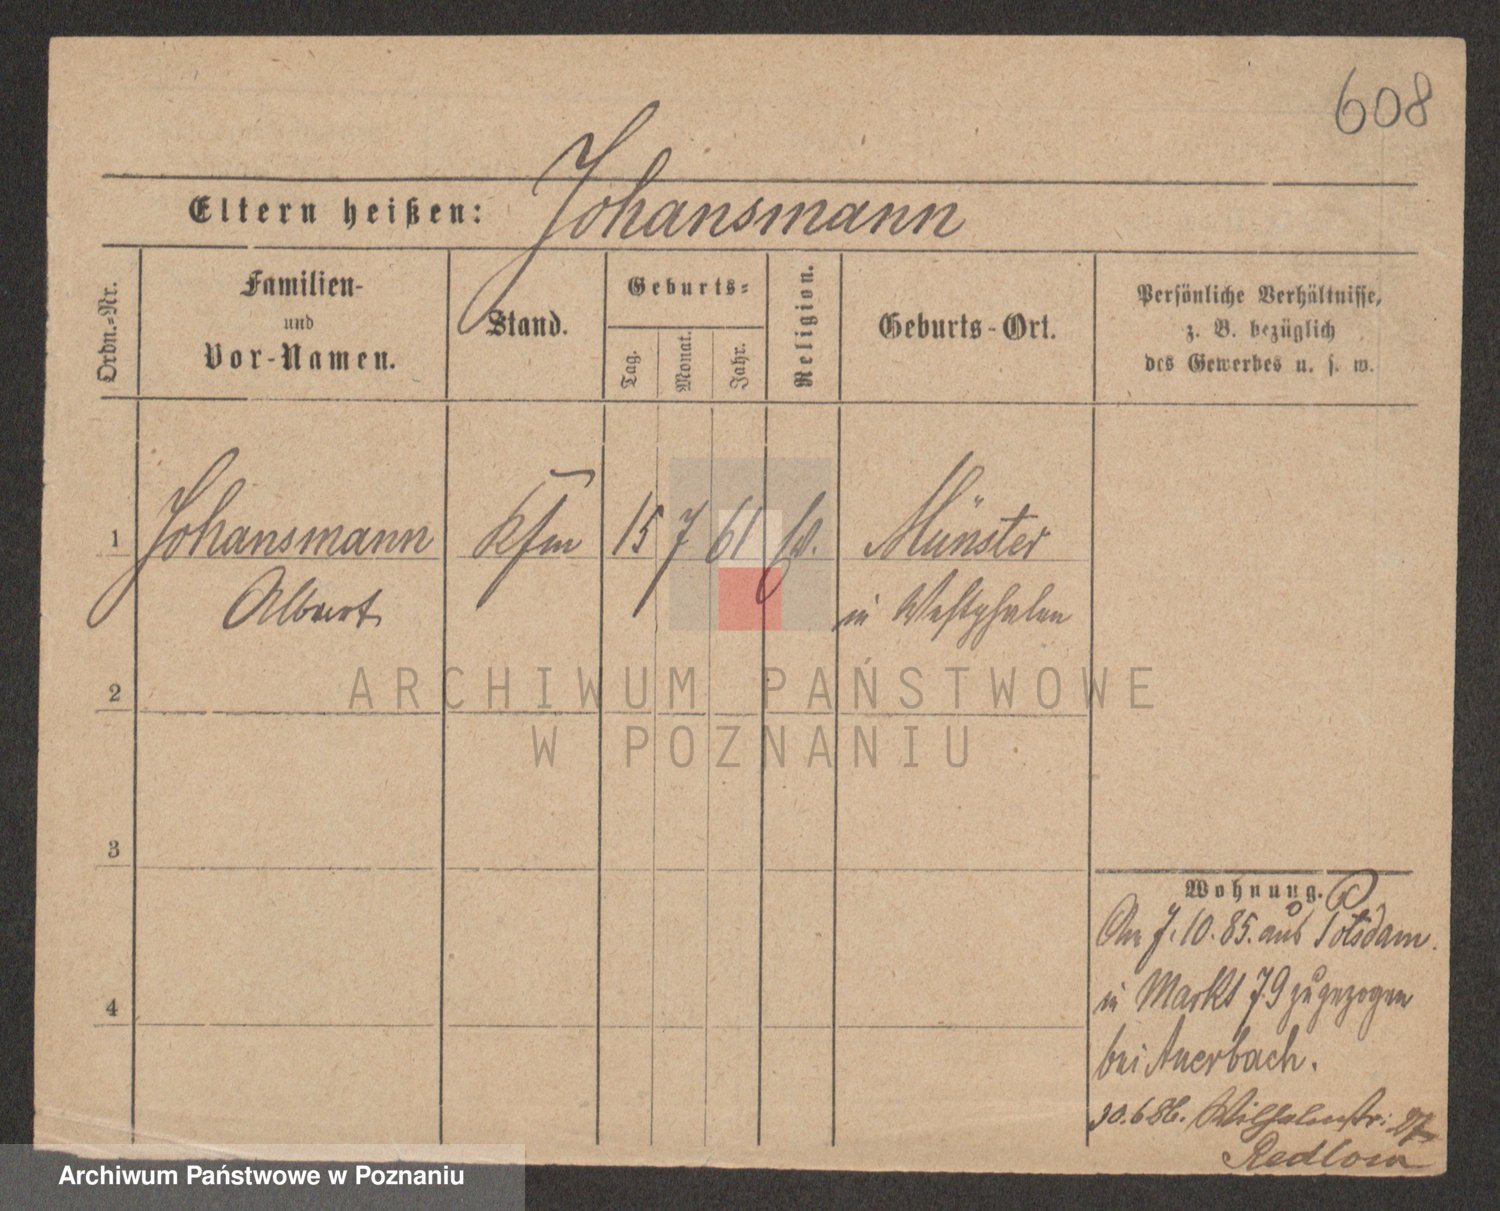 608
Eltern heißen: Johansmann
Ordn.-Nr.
Familien-
und
Vor-Namen.
Stand.
Geburts-
Tag.
Monat.
Jahr.
Religion.
Geburts-Ort.
Persönliche Verhältnisse,
z. B. bezüglich
des Gewerbes u. s. w.
1 Johansmann Kfm 15 7 61 Münster
Albert in Westphalen
2
3
4
Wohnung.
Am 7.10.85. aus Potsdam.
in Markt 79 zugezogen
bei Auerbach.
30.6.86. Wilhelmstr. 27
Redlow
ARCHIWUM PAŃSTWOWE
W POZNANIU
Archiwum Państwowe w Poznaniu